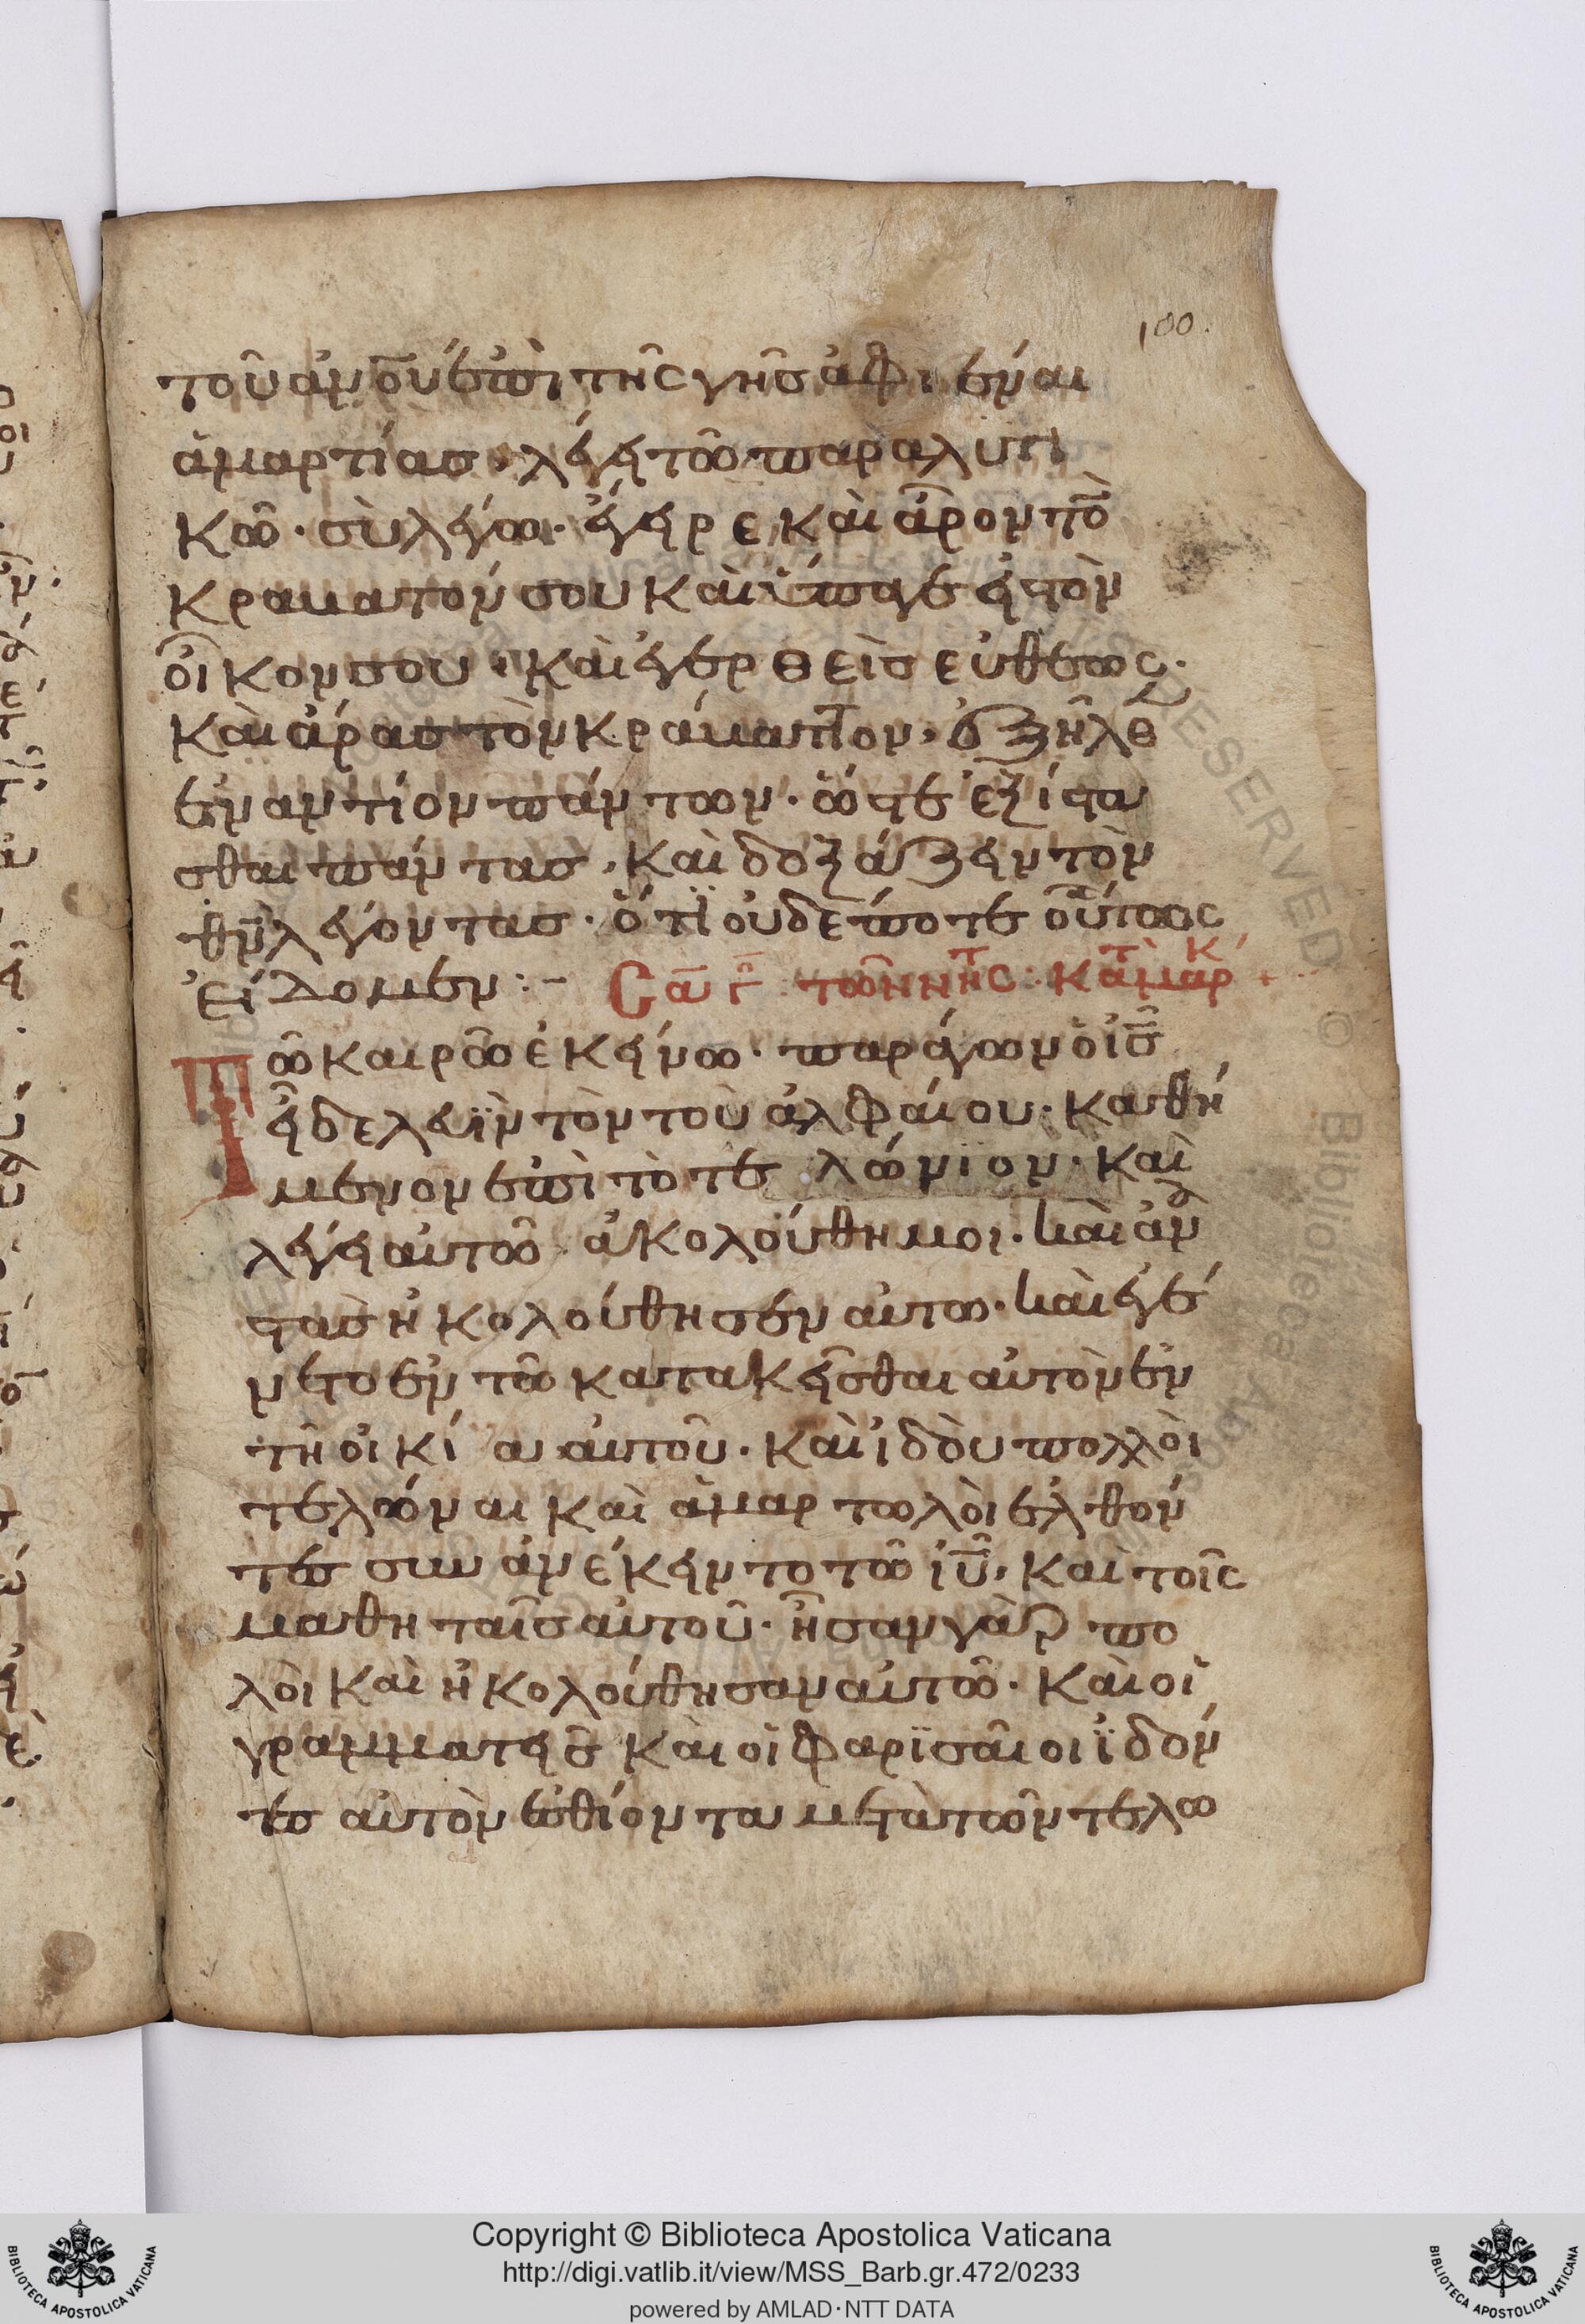 100.
τοῦ ἀν̅ο̅υ̅ ἐπὶ τῆς γῆς ἀφιέναι
ἁμαρτίας, λέγει τῶ παραλυτι
κῶ · σὺ λέγω · ἔγειρε καὶ ἆρον τὸ
κραματόν σου καὶ ὕπαγε εἰς τὸν
οἶκον σου · καὶ ἐγερθεὶς εὐθέως ·
καὶ ἄρας τὸν κράματτον, ἐξῆλθε
ἐναντίον πάντων · ὥστε ἐξίστα
σθαι πάντας, καὶ δοξάζειν τὸν
θ̅ν̅ λέγοντας · ὅτι οὐδέποτε οὕτως
εἴδομεν :-
Σα Γ τῶν νητς : κατὰ Μάρκ +
Τῶ καιρῶ ἐκείνω · παράγων ὁ ι̅ς̅
εἶδε λευῒν τὸν τοὺ ἀλφαίου · καθή
μενον ἐπὶ τὸ τελώνιον · καὶ
λέγει αὐτῶ ἀκολούθη μοι · καὶ ἀνα
στὰς ἠκολούθησεν αὐτω · καὶ ἐγέ
νετο ἐν τῶ κατακεῖσθαι αὐτὸν ἐν
τῆ οἰκία αὐτοῦ · καὶ ἰδὸυ πολλὸι
τελώναι καὶ ἁμαρτωλὸι ἐλθόν
τες συν ἀνέκειντο τῶ ι̅υ̅, καὶ τοῖς
μαθηταῖς αὐτοῦ · ἦσαν γὰρ πο
λὸι καὶ ἠκολούθησαν αὐτῶ · καὶ οἱ
γραμματεῖς καὶ οἱ φαρϊσαῖοι ἰδόν
τες αὐτὸν ἐσθίοντα μετὰ τῶν τελω
Copyright © Biblioteca Apostolica Vaticana
http://digi.vatlib.it/view/MSS_Barb.gr.472/0233
powered by AMLAD·NTT DATA
BIBLIOTECA APOSTOLICA VATICANA
BIBLIOTECA APOSTOLICA VATICANA